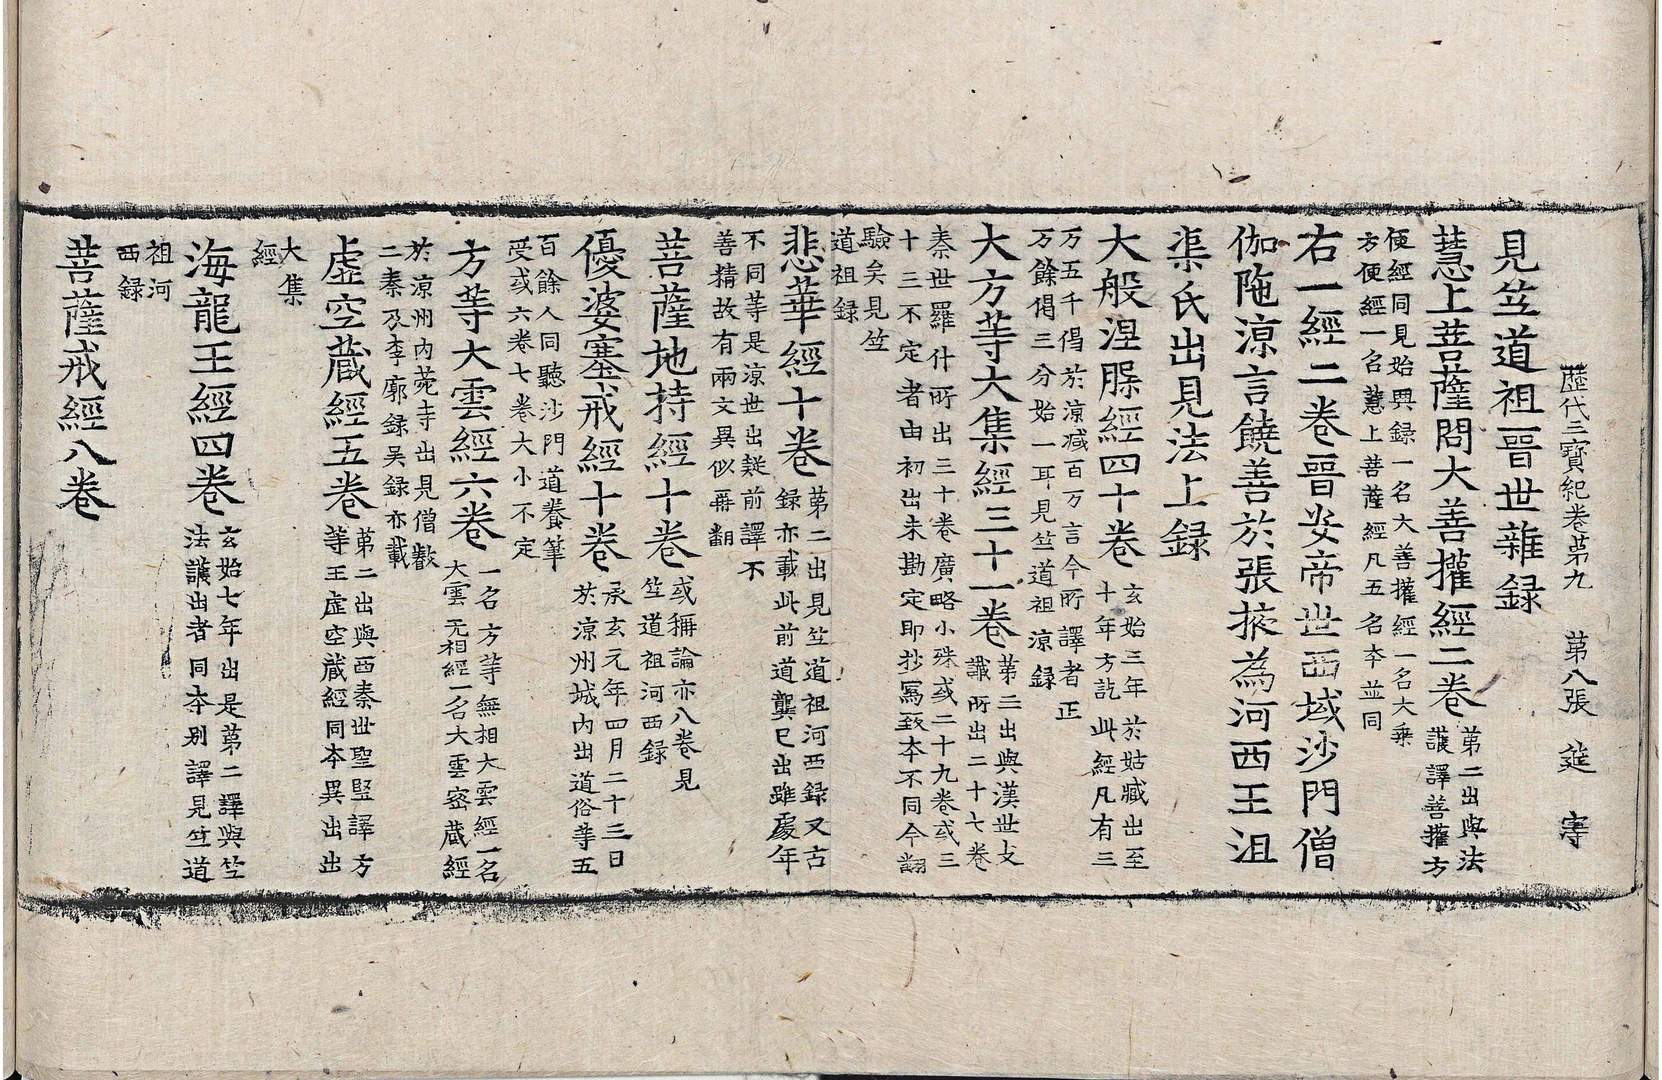 歷代三寶紀卷第九　第八張　筵　寧
見竺道祖晉世雜録
慧上菩薩問大善權經二卷
第二出與法
護譯善權方
便經同見始興録一名大善權經一名大乘
方便經一名慧上菩薩經凡五名夲並同
右一經二卷晉安帝世西域沙門僧
伽陁涼言饒善於張掖為河西王沮
渠氏出見法上録
大般涅槃經四十卷
玄始三年於姑臧出至
十年方訖此經凡有三
万五千偈於涼减百万言今所譯者正
万餘偈三分始一耳見竺道祖涼録
大方等大集經三十一卷
第二出與漢世支
讖所出二十七卷
秦世羅什所出三十卷廣略小殊或二十九卷或三
十三不定者由初出未勘定即抄寫致夲不同今翻
驗矣見竺
道祖録
悲華經十卷
第二出見竺道祖河西録又古
録亦載此前道龔已出雖處年
不同等是涼世出疑前譯不
善精故有兩文異似再翻
菩薩地持經十卷
或稱論亦八卷見
竺道祖河西録
優婆塞戒經十卷
承玄元年四月二十三日
於涼州城内出道俗等五
百餘人同聽沙門道養筆
受或六卷七卷大小不定
方等大雲經六卷
一名方等無相大雲經一名
大雲无相經一名大雲密蔵經
於涼州内菀寺出見僧叡
二秦及李廓録吴録亦載
虚空蔵經五卷
第二出與西秦世聖堅譯方
等王虚空蔵經同夲異出出
大集
經
海龍王經四卷
玄始七年出是第二譯與竺
法護出者同夲别譯見竺道
祖河
西録
菩薩戒經八卷